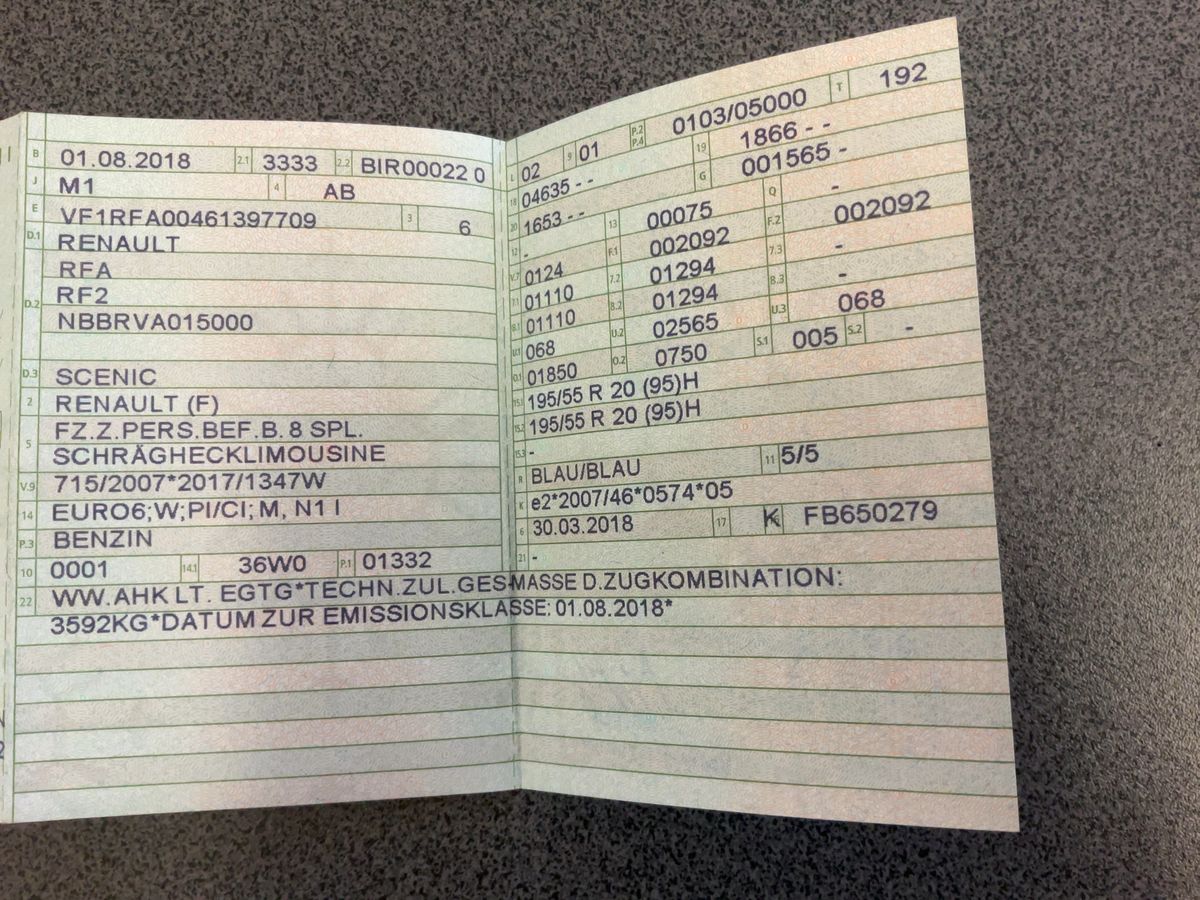 B 01.08.2018 2.1 3333 2.2 BIR00022 0
J M1 4 AB
E VF1RFA00461397709 3 6
D.1 RENAULT
RFA
D.2 RF2
NBBRVA015000
D.3 SCENIC
2 RENAULT (F)
5 FZ.Z.PERS.BEF.B. 8 SPL.
SCHRÄGHECKLIMOUSINE
V.9 715/2007*2017/1347W
14 EURO6;W;PI/CI; M, N1 I
P.3 BENZIN
10 0001 14.1 36W0 P.1 01332
L 02 9 01 P.2 P.4 0103/05000 T 192
18 04635 - - 19 1866 - -
20 1653 - - G 001565 -
12 - 13 00075 Q -
V.7 0124 F.1 002092 F.2 002092
7.1 01110 7.2 01294 7.3 -
8.1 01110 8.2 01294 8.3 -
U.1 068 U.2 02565 U.3 068
O.1 01850 O.2 0750 S.1 005 S.2 -
15.1 195/55 R 20 (95)H
15.2 195/55 R 20 (95)H
15.3 -
R BLAU/BLAU 11 5/5
K e2*2007/46*0574*05
6 30.03.2018 17 K FB650279
21 -
22 WW.AHK LT. EGTG*TECHN.ZUL.GES-MASSE D.ZUGKOMBINATION:
3592KG*DATUM ZUR EMISSIONSKLASSE: 01.08.2018*